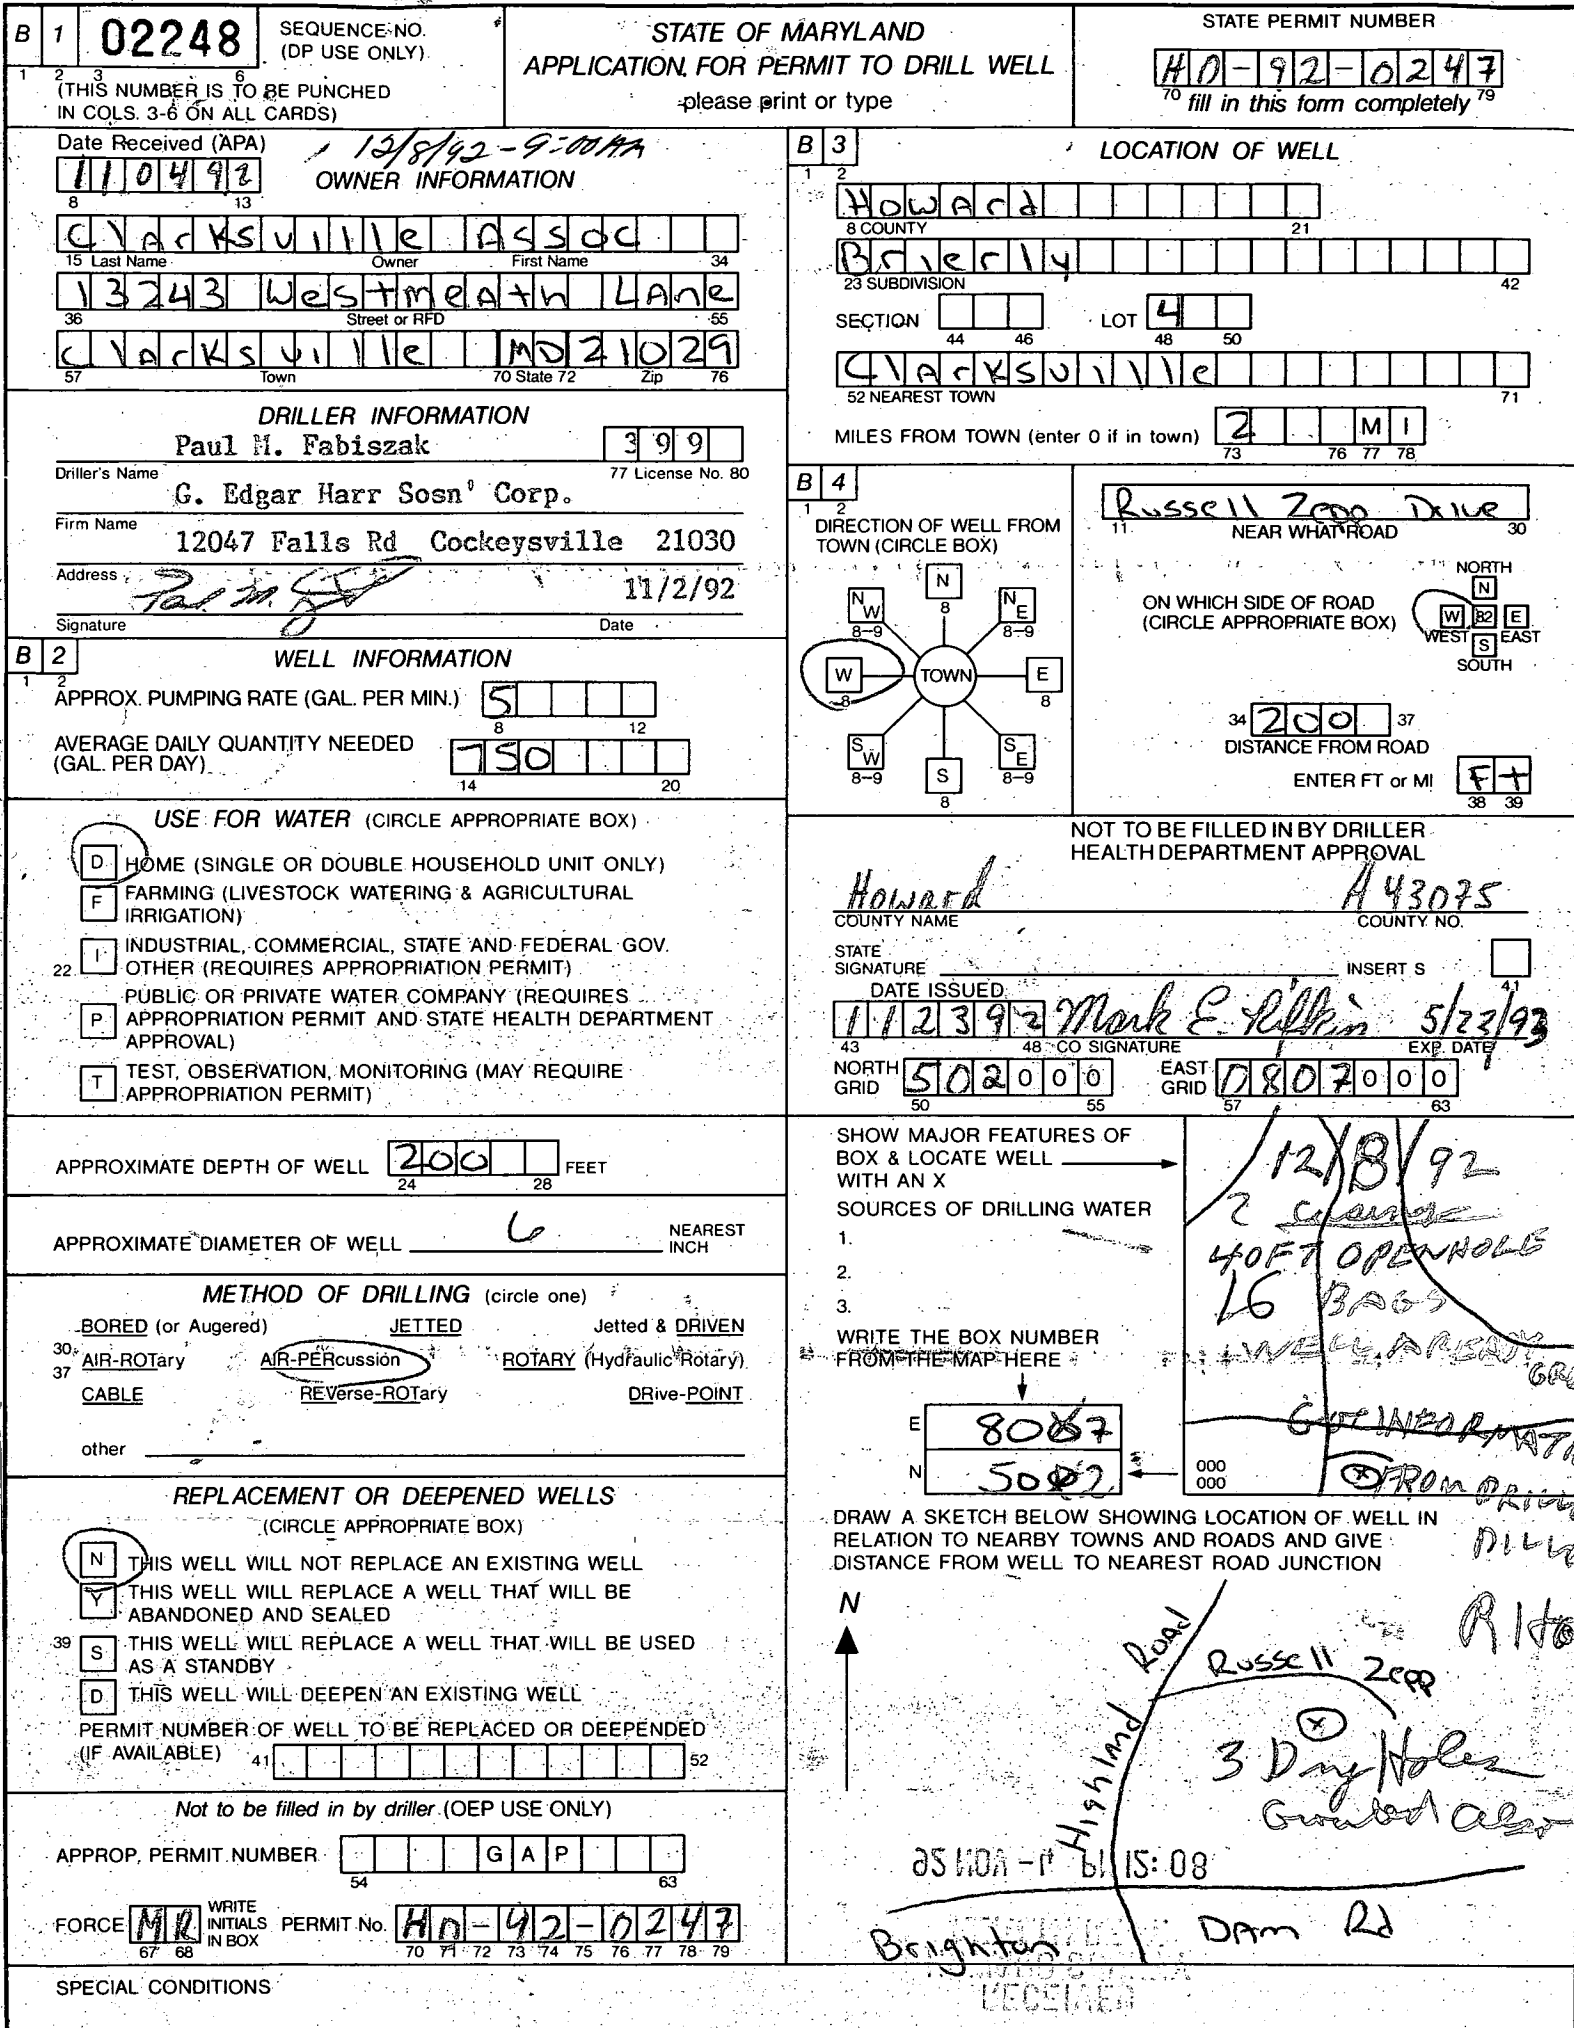 B 1 02248 SEQUENCE NO. (DP USE ONLY)
1 2 3 6
(THIS NUMBER IS TO BE PUNCHED
IN COLS. 3-6 ON ALL CARDS)
STATE OF MARYLAND
APPLICATION FOR PERMIT TO DRILL WELL
please print or type
STATE PERMIT NUMBER
HO-92-0247
70 fill in this form completely 79
Date Received (APA)
12/8/92 - 9:00AM
110492
8 13
OWNER INFORMATION
Clarksville Assoc
15 Last Name Owner First Name 34
13243 Westmeath Lane
36 Street or RFD 55
Clarksville MD 21029
57 Town 70 State 72 Zip 76
DRILLER INFORMATION
Paul M. Fabiszak 399
Driller's Name 77 License No. 80
G. Edgar Harr Sosn' Corp.
Firm Name
12047 Falls Rd Cockeysville 21030
Address
11/2/92
Signature Date
B 2 WELL INFORMATION
1 2
APPROX. PUMPING RATE (GAL. PER MIN.) 5
8 12
AVERAGE DAILY QUANTITY NEEDED
(GAL. PER DAY) 750
14 20
USE FOR WATER (CIRCLE APPROPRIATE BOX)
D HOME (SINGLE OR DOUBLE HOUSEHOLD UNIT ONLY)
F FARMING (LIVESTOCK WATERING & AGRICULTURAL
IRRIGATION)
22 I INDUSTRIAL, COMMERCIAL, STATE AND FEDERAL GOV.
OTHER (REQUIRES APPROPRIATION PERMIT)
P PUBLIC OR PRIVATE WATER COMPANY (REQUIRES
APPROPRIATION PERMIT AND STATE HEALTH DEPARTMENT
APPROVAL)
T TEST, OBSERVATION, MONITORING (MAY REQUIRE
APPROPRIATION PERMIT)
APPROXIMATE DEPTH OF WELL 200 FEET
24 28
APPROXIMATE DIAMETER OF WELL 6 NEAREST INCH
METHOD OF DRILLING (circle one)
BORED (or Augered) JETTED Jetted & DRIVEN
30 AIR-ROTary AIR-PERcussion ROTARY (Hydraulic Rotary)
37
CABLE REVerse-ROTary DRive-POINT
other
REPLACEMENT OR DEEPENED WELLS
(CIRCLE APPROPRIATE BOX)
N THIS WELL WILL NOT REPLACE AN EXISTING WELL
Y THIS WELL WILL REPLACE A WELL THAT WILL BE
ABANDONED AND SEALED
39 S THIS WELL WILL REPLACE A WELL THAT WILL BE USED
AS A STANDBY
D THIS WELL WILL DEEPEN AN EXISTING WELL
PERMIT NUMBER OF WELL TO BE REPLACED OR DEEPENDED
(IF AVAILABLE) 41 52
Not to be filled in by driller (OEP USE ONLY)
APPROP. PERMIT NUMBER G A P
54 63
FORCE MR WRITE INITIALS IN BOX PERMIT No. HO-92-0247
67 68 70 71 72 73 74 75 76 77 78 79
SPECIAL CONDITIONS
B 3 LOCATION OF WELL
1 2
Howard
8 COUNTY 21
Brierly
23 SUBDIVISION 42
SECTION LOT 4
44 46 48 50
Clarksville
52 NEAREST TOWN 71
MILES FROM TOWN (enter 0 if in town) 2 M I
73 76 77 78
B 4
1 2
DIRECTION OF WELL FROM
TOWN (CIRCLE BOX)
N 8
NW 8-9 NE 8-9
W 8 TOWN E 8
SW 8-9 SE 8-9
S 8
Russell Zepp Drive
11 NEAR WHAT ROAD 30
ON WHICH SIDE OF ROAD
(CIRCLE APPROPRIATE BOX)
NORTH
N
W 82 E
WEST EAST
S
SOUTH
34 200 37
DISTANCE FROM ROAD
ENTER FT or MI Ft
38 39
NOT TO BE FILLED IN BY DRILLER
HEALTH DEPARTMENT APPROVAL
Howard A 43075
COUNTY NAME COUNTY NO.
STATE
SIGNATURE INSERT S
41
DATE ISSUED
112392 Mark E. Rifkin 5/23/93
43 48 CO SIGNATURE EXP. DATE
NORTH GRID 502000 EAST GRID 0807000
50 55 57 63
SHOW MAJOR FEATURES OF
BOX & LOCATE WELL
WITH AN X
SOURCES OF DRILLING WATER
1.
2.
3.
WRITE THE BOX NUMBER
FROM THE MAP HERE
E 807
N 502
000
000
12/8/92
2 casings
40FT OPENHOLE
16 BAGS
WELL ALREADY
GOT INFORMATI
X FROM DRILL
DRAW A SKETCH BELOW SHOWING LOCATION OF WELL IN
RELATION TO NEARBY TOWNS AND ROADS AND GIVE
DISTANCE FROM WELL TO NEAREST ROAD JUNCTION
N
Highland Road
Russell Zepp
X
3 Dry Holes
Grouted also
Brighton Dam Rd
RECEIVED